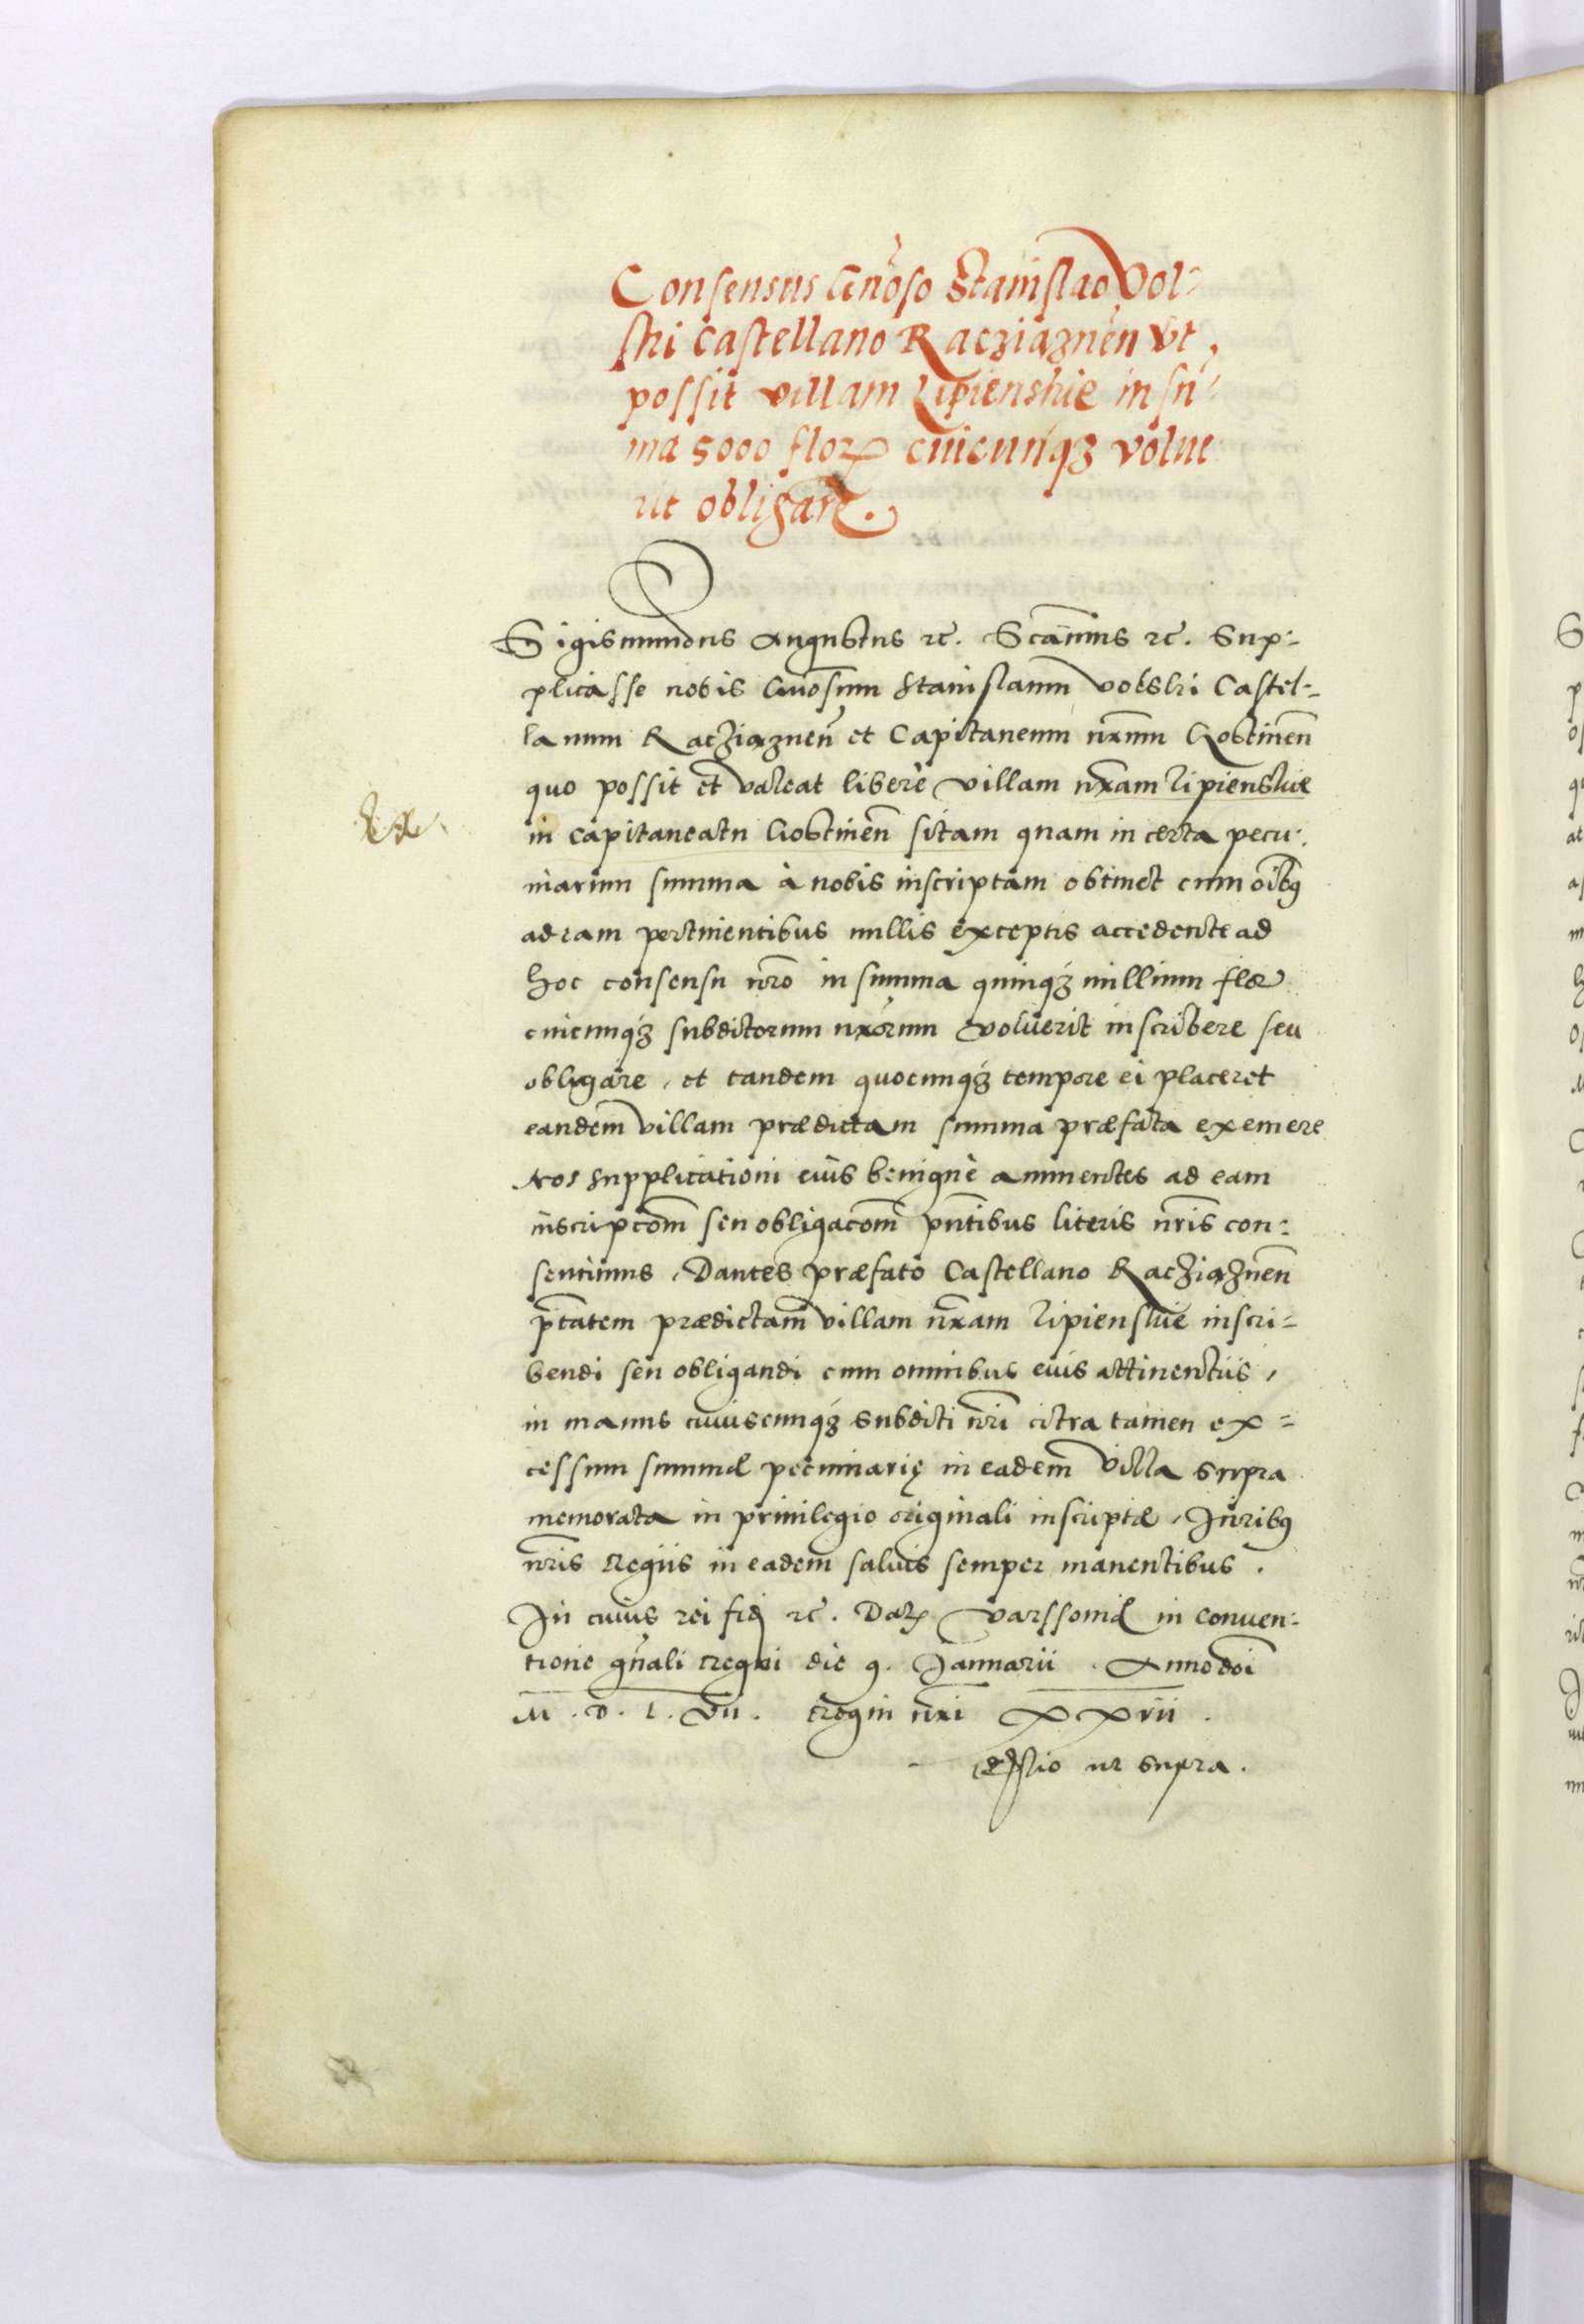 Consensus Gnoso Stanislao Vol-
ski Castellano Racziąznen vt
possit villam Lipienskie in sum-
ma 5000 flor cuicunqз volue
rit obligare.
Sigismundus Augustus etc. Scimus etc. Sup-
plicasse nobis Gnosum Stanislaum Volski Castel-
lanum Racziąznen et Capitaneum nrum Gostinen
quo possit et valeat liberè villam nram Lipienskie
in capitaneatu Gostinen sitam quam in certa pecu-
niarum summa à nobis inscriptam obtinet cum oibus
ad eam pertinentibus nullis exceptis accedente ad
hoc consensu nro in summa quinqз millium flor
cuicunqз subditorum nrorum voluerit inscribere seu
obligare, et tandem quocunqз tempore ei placeret
eandem villam prædictam summa præfata exemere
Nos supplicationi eius benignè annuentes ad eam
inscripcom seu obligacom pntibus literis nris con-
sentimus, Dantes præfato Castellano Racziąznen
ptatem prædictam villam nram Lipienskie inscri-
bendi seu obligandi cum omnibus eius attinentiis,
in manus cuiuscunqз subditi nri citra tamen ex-
cessum summæ pecuniarię in eadem villa supra
memorata in priuilegio originali inscriptæ, Juribus
nris regiis in eadem saluis semper manentibus.
In cuius rei fidē etc. Dat Varssouiæ in conuen-
tione gnali regni die 9. Januarii. Anno doi
M. D. L. vii. regni nri xxvii.
Relatio ut supra.